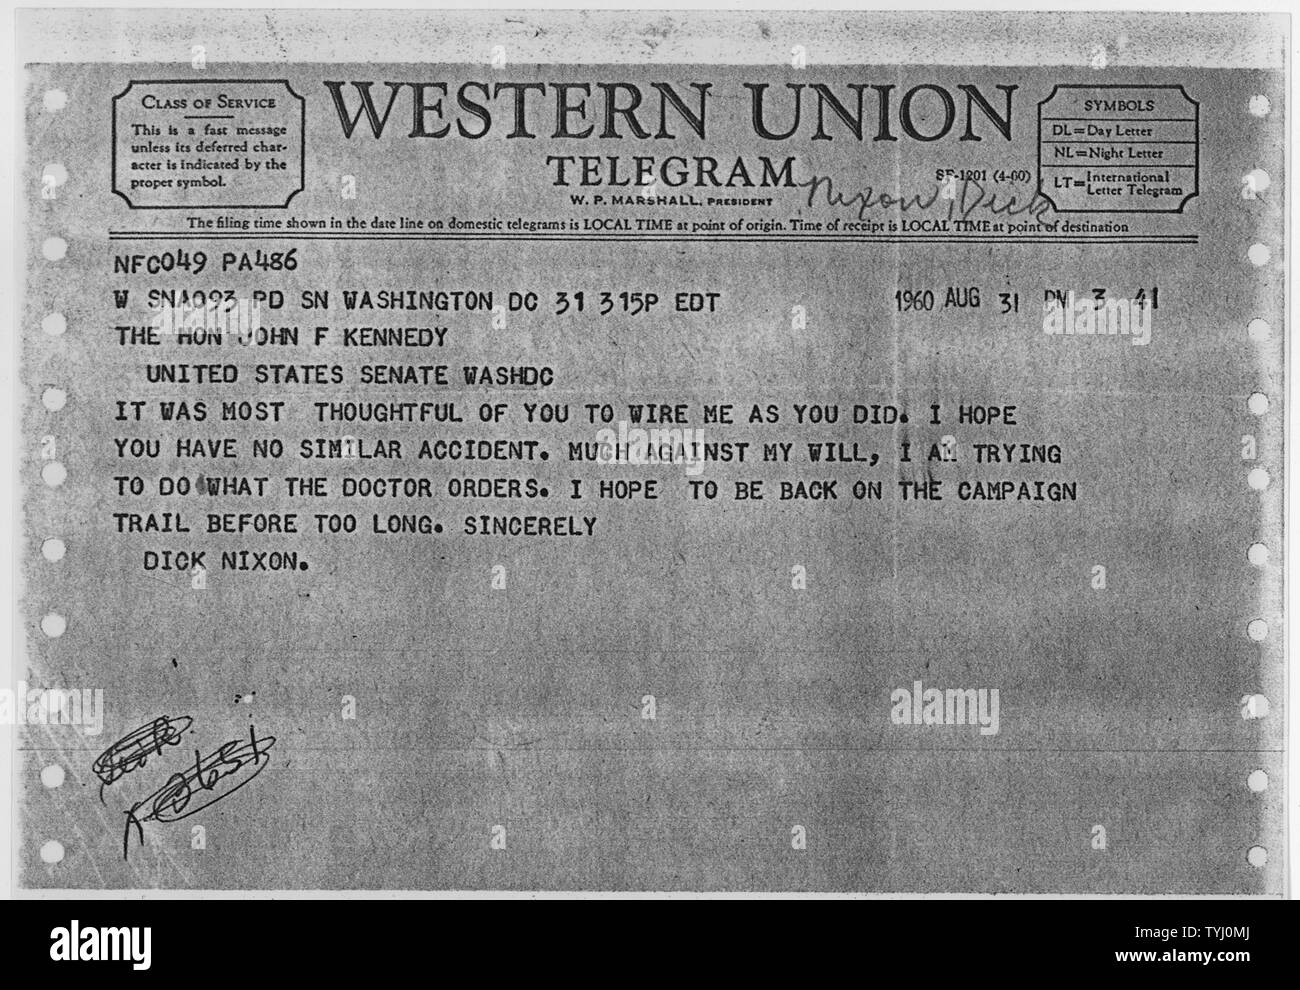 CLASS OF SERVICE
This is a fast message
unless its deferred char-
acter is indicated by the
proper symbol.
WESTERN UNION
TELEGRAM
W. P. MARSHALL, PRESIDENT
SF-1201 (4-60)
Nixon, Dick
SYMBOLS
DL=Day Letter
NL=Night Letter
LT=International
Letter Telegram
The filing time shown in the date line on domestic telegrams is LOCAL TIME at point of origin. Time of receipt is LOCAL TIME at point of destination
NFC049 PA486
W SNA093 PD SN WASHINGTON DC 31 315P EDT
1960 AUG 31 PM 3 41
THE HON JOHN F KENNEDY
UNITED STATES SENATE WASHDC
IT WAS MOST THOUGHTFUL OF YOU TO WIRE ME AS YOU DID. I HOPE
YOU HAVE NO SIMILAR ACCIDENT. MUCH AGAINST MY WILL, I AM TRYING
TO DO WHAT THE DOCTOR ORDERS. I HOPE TO BE BACK ON THE CAMPAIGN
TRAIL BEFORE TOO LONG. SINCERELY
DICK NIXON.
alamy
alamy
a alamy
Image ID: TYJ0MJ
www.alamy.com